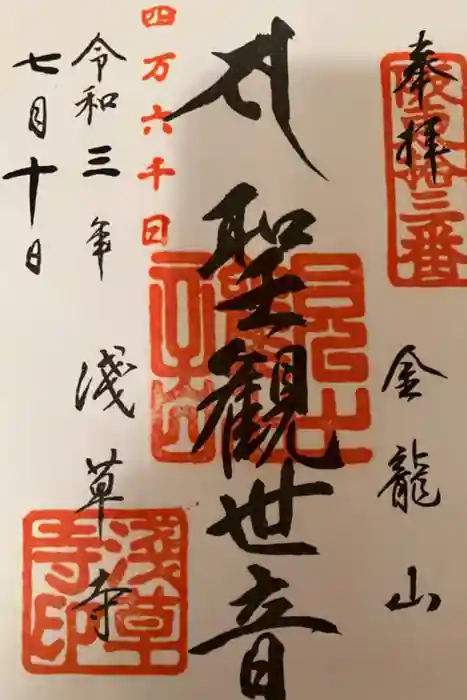 奉拝
坂東拾三番
金龍山
聖観世音
四万六千日
令和三年
七月十日
淺草寺
淺草寺印